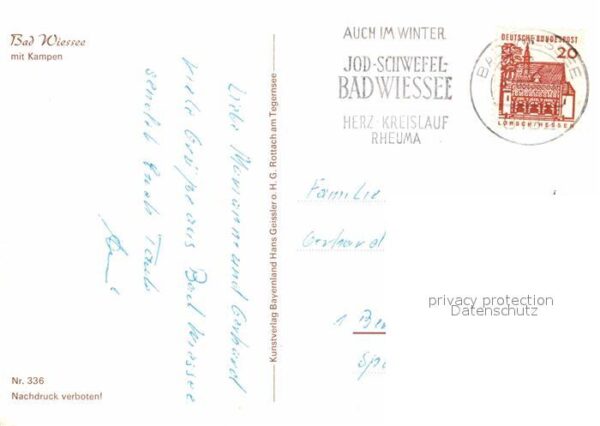 Bad Wiessee
mit Kampen
Liebe Marianne und Gerhard
viele Grüße aus Bad Wiessee
sendet Euch Tante
Kunstverlag Bayernland Hans Geissler o. H. G. Rottach am Tegernsee
AUCH IM WINTER
JOD-SCHWEFEL-
BAD WIESSEE
HERZ-KREISLAUF
RHEUMA
DEUTSCHE BUNDESPOST
20
LORSCH/HESSEN
Familie
Gerhard
1 Be
privacy protection
Datenschutz
Nr. 336
Nachdruck verboten!